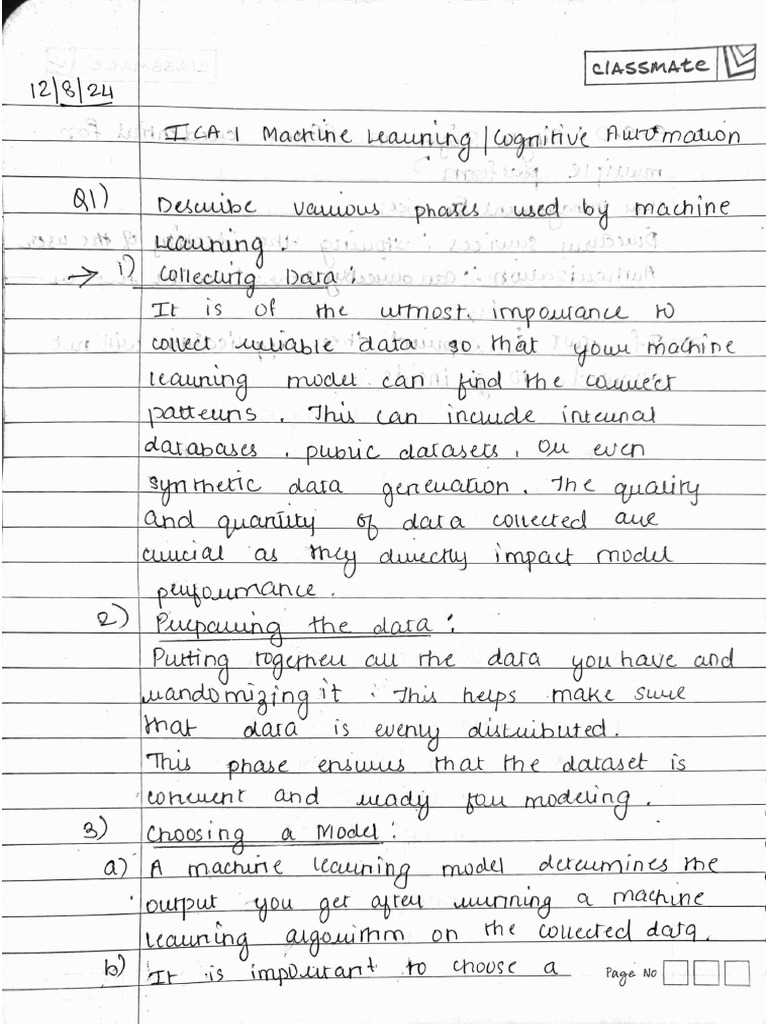 classmate
12/8/24
ICA 1 Machine Learning / Cognitive Automation
Q1) Describe various phases used by machine
learning.
→ 1) Collecting Data:
It is of the utmost importance to
collect reliable data so that your machine
learning model can find the correct
patterns. This can include internal
databases, public datasets, or even
synthetic data generation. The quality
and quantity of data collected are
crucial as they directly impact model
performance.
2) Preparing the data:
Putting together all the data you have and
randomizing it. This helps make sure
that data is evenly distributed.
This phase ensures that the dataset is
coherent and ready for modeling.
3) Choosing a Model:
a) A machine learning model determines the
output you get after running a machine
learning algorithm on the collected data.
b) It is important to choose a
Page No